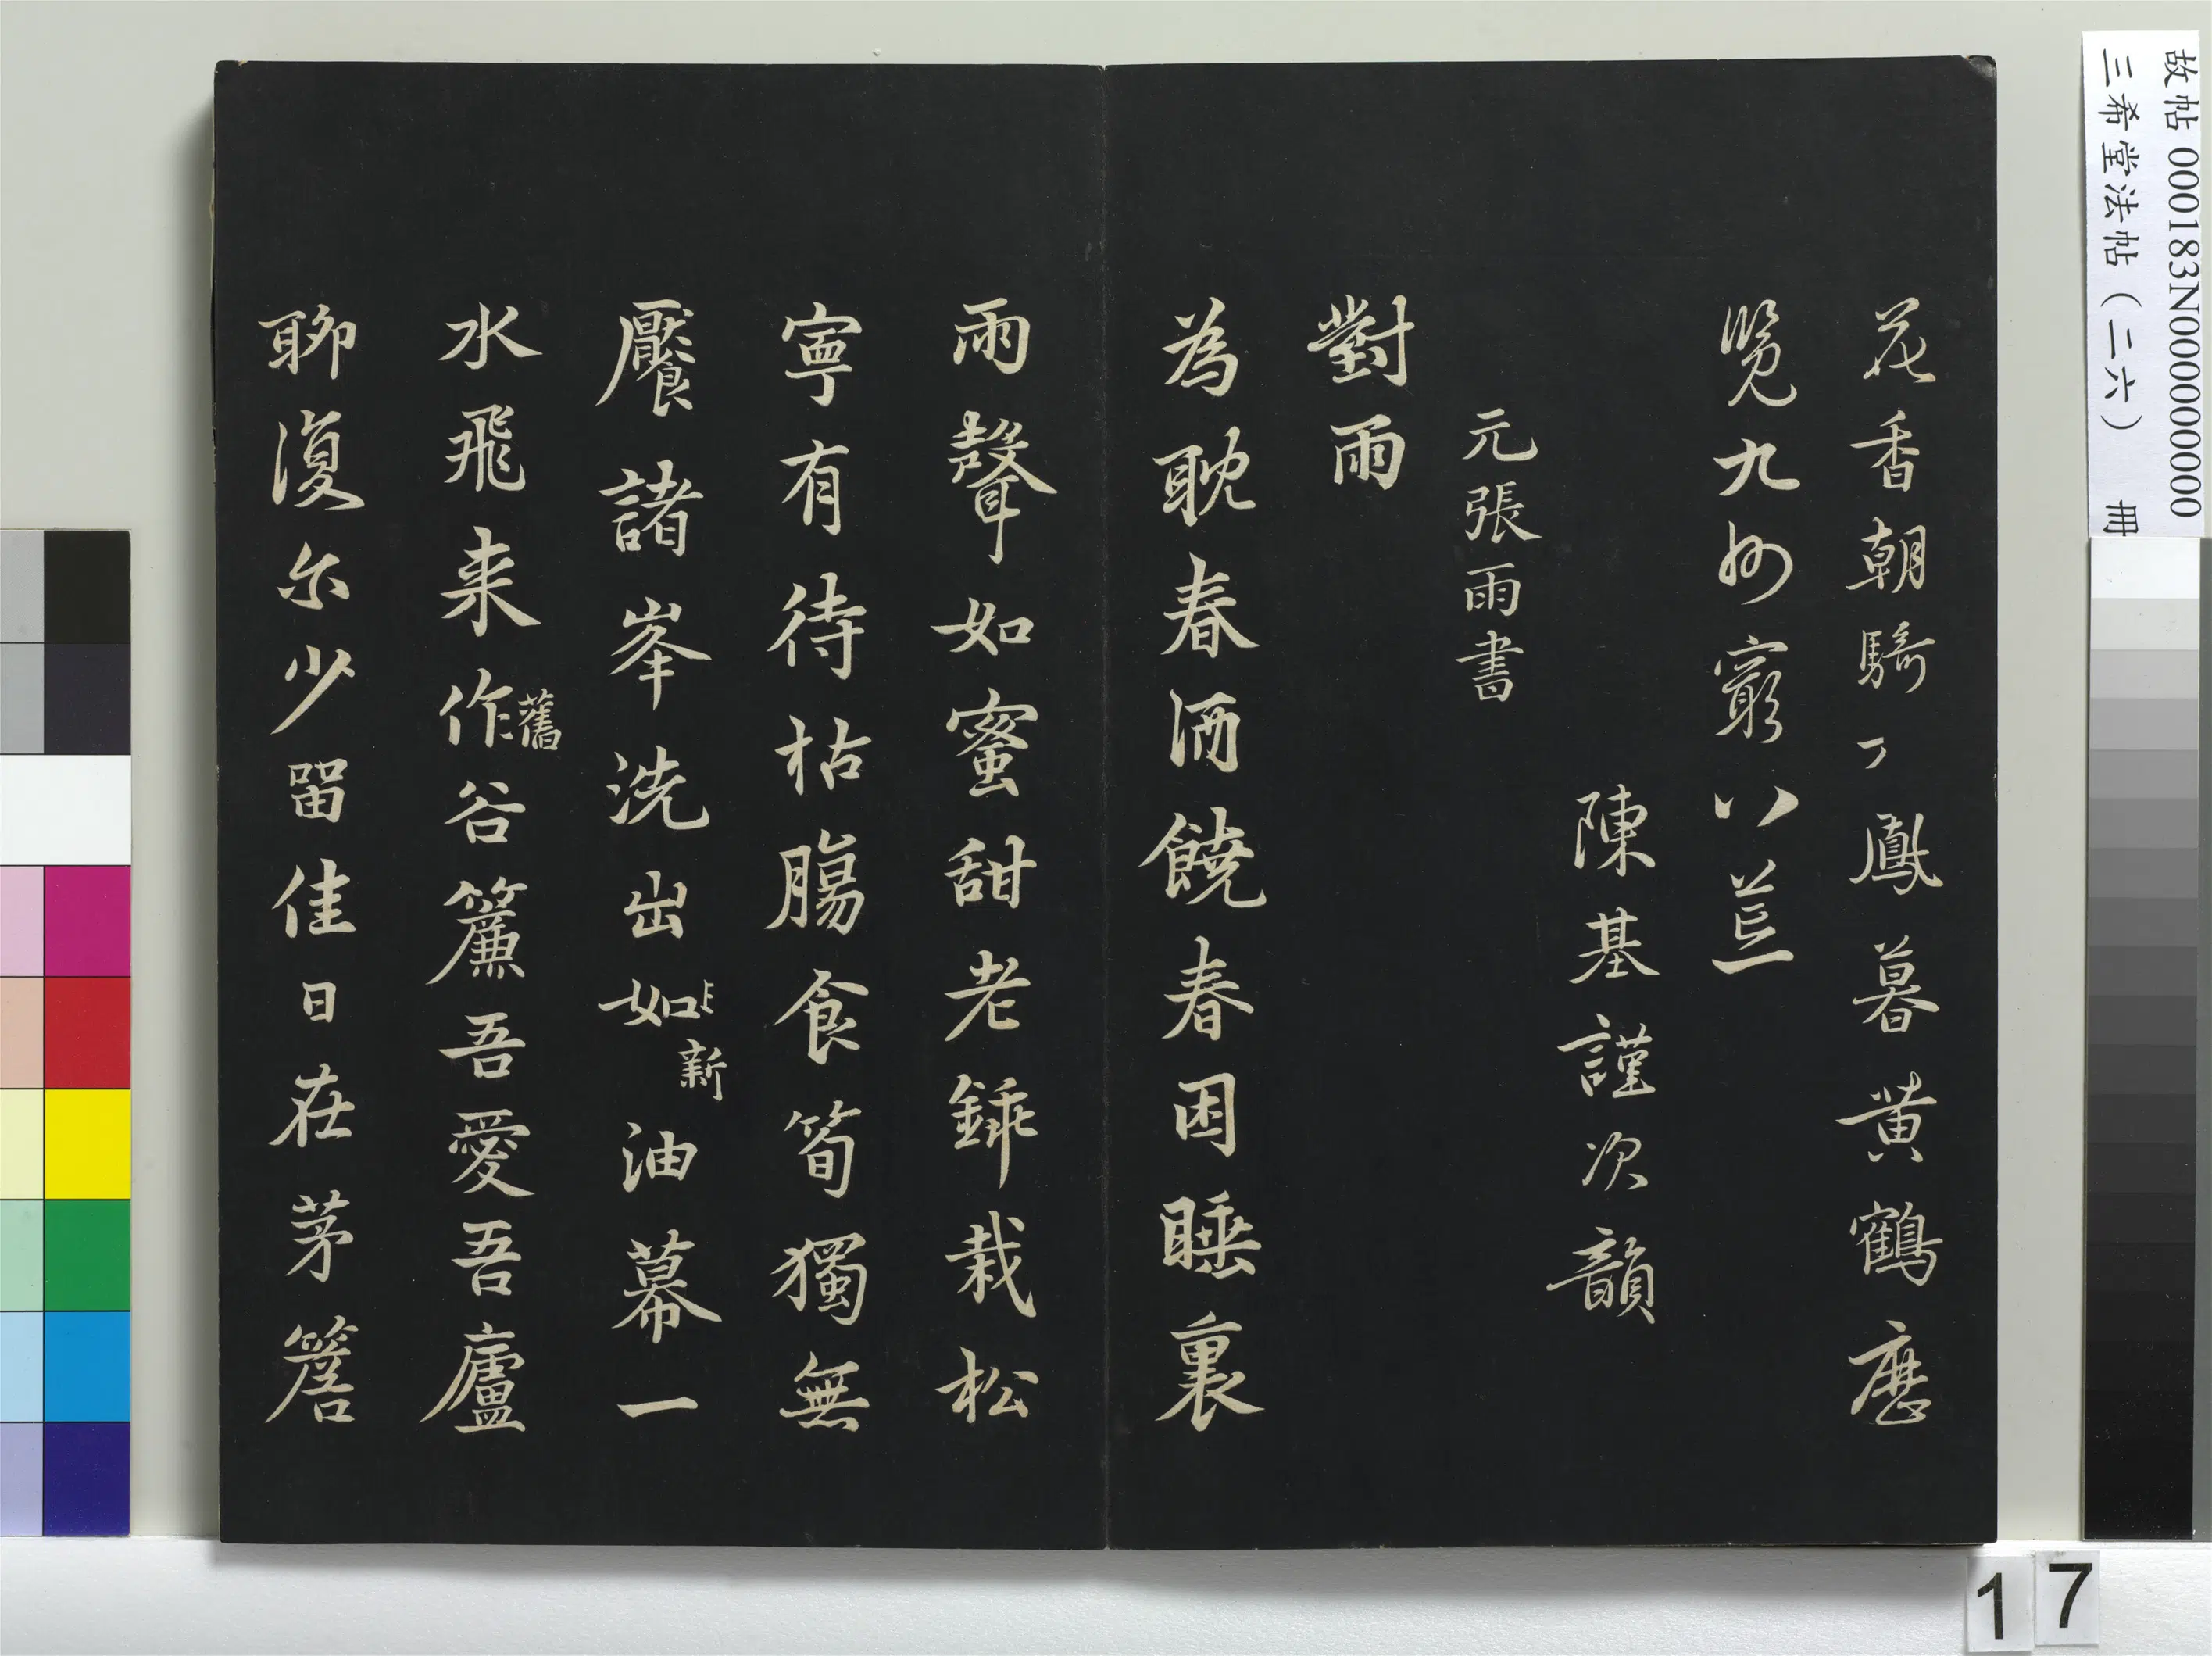 花香朝騎丁鳳暮黃鶴歷
覽九州窮八荒
陳基謹次韻
元張雨書
對雨
為耽春酒饒春困睡裏
雨聲如蜜甜老錍栽松
寧有待枯腸食筍獨無
饜諸峯洗出如新油幕一
水飛来作舊谷簾吾愛吾廬
聊復尒少留佳日在茅簷
故帖 000183N000000000
三希堂法帖（二六） 冊
17